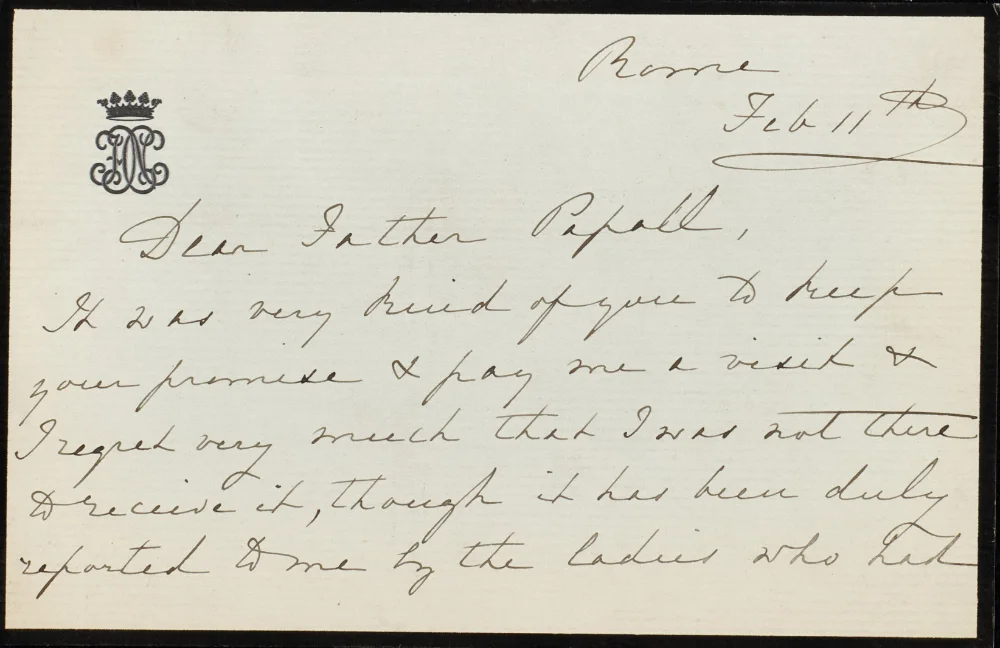 Rome
Feb 11th
Dear Father Papall,
It was very kind of you to keep
your promise & pay me a visit &
I regret very much that I was not there
to receive it, though it has been duly
reported to me by the ladies who had